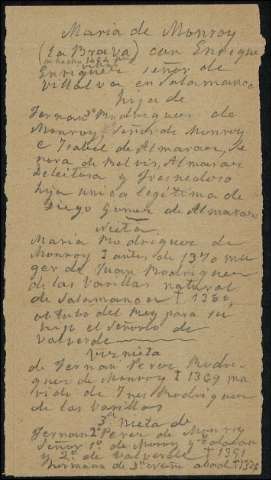 Maria de Monroy
(La Brava) con Enrique
Enriquez señor de
Villalva en Salamanca
hija de
Hernan Rodriguez de
Monroy, Señor de Monroy
e Isabel de Almaraz, se
ñora de Belvis, Almaraz
Deleitosa y Fresnedoso
hija unica legitima de
Diego Gomez de Almaraz
Nieta.
Maria Rodriguez de
Monroy † antes de 1370 mu
ger de Juan Rodriguez
de las Varillas natural
de Salamanca † 1380
obtubo del Rey para su
hijo el señorio de
Valverde
viznieta
de Fernan Perez Rodri
guez de Monroy † 1369 ma
rido de Ines Rodriguez
de las Varillas
3ª Nieta de
Fernan Perez de Monroy
Señor 1º de Monroy
y 2º de Valverde † 1391
hermana de